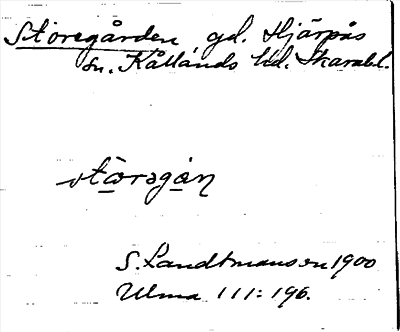 Storegården gd. Hjärpås
sn. Kållands hd. Skarabl.
stóragán
S. Landtmanson 1900
Ulma 111:196.